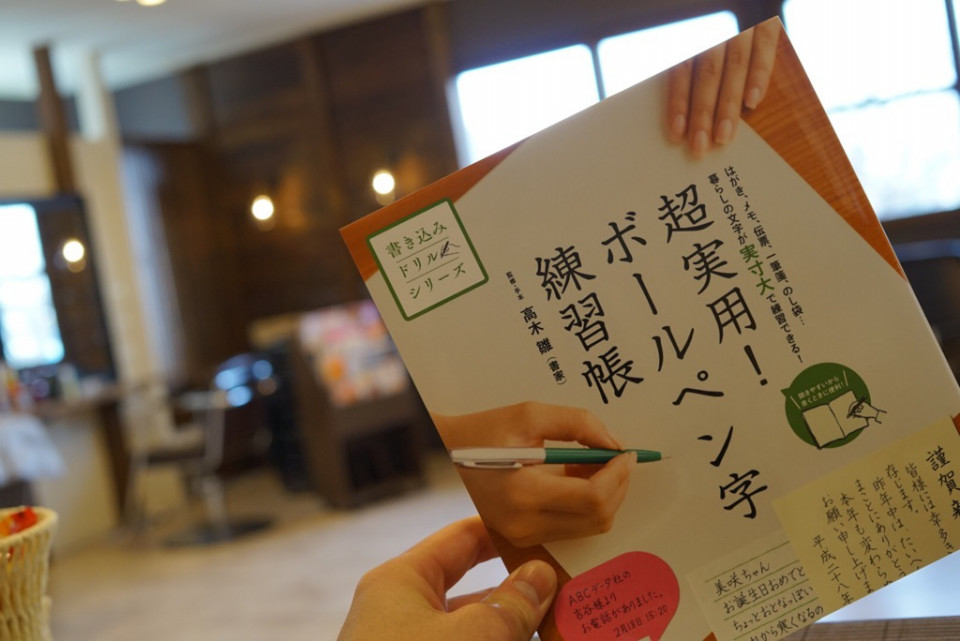 はがき、メモ、伝票、一筆箋、のし袋…
暮らしの文字が実寸大で練習できる！
超実用！
ボールペン字
練習帳
監修・手本 高木雛（書家）
書き込み
ドリル
シリーズ
開きやすいから
書くときに便利！
謹賀新
皆様には幸多き
存じます。
昨年中はたいへ
まことにありがと
本年も変わら
お願い申し上げま
平成二十八年
美咲ちゃん
お誕生日おめでと
ちょっとおとなっぽい
これから熱くなるの
ABCデータ社の
古谷様より
お電話がありました。
2月18日 15:20